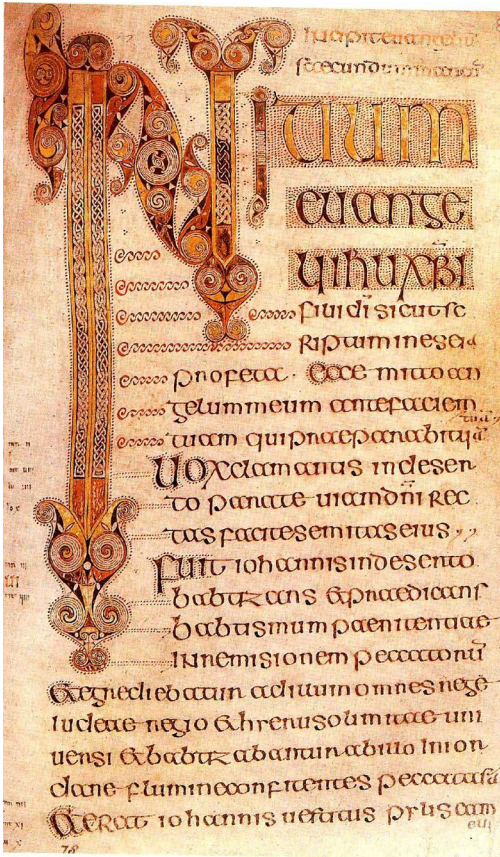 INITIUM
euange
lii ihu xpi
fili di sicut sc
riptum in eseia
profeta · Ecce mitto an
gelum meum ante faciem
tuam qui praeparabit uiā
Uox clamantis in deser
to parate uiam dn̄i rec
tas facite semitas eius ,,
fuit iohannis in deserto
babtizans & praedicans
babtismum paenitentiae
in remisionem peccatorū
& egrediebatur ad illum omnes
iudeae regio & hierusolimitae uni
uersi & babtizabantur ab illo in ior
dane flumine confitentes peccata sua
& erat iohannis uestitus pylis cam
eli